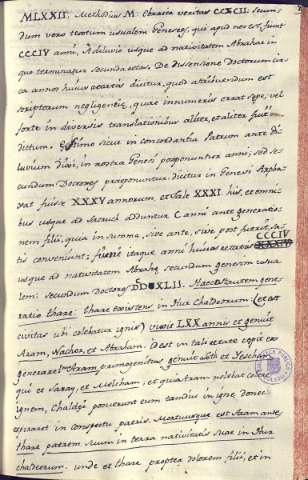 MLXXII. Methodius M. Ebraica veritas CCXCII. secun-
dum vero textum usualem Geneseos, qui apud nos est, fiunt
CCCIV anni, A diluvio usque ad nativitatem Abrahae in
quo terminatur secunda aetas. De dissensione Doctorum cir-
ca annos huius aetatis dicitur, quod attribuendum est
scriptorum negligentiae, quae innumeris errat saepe, vel
forte in diversis translationibus aliter, et aliter fuit
dictum. sicut in concordantia Patrum ante di-
luvium Dixi, in nostra Genesi postponuntur anni, sed se-
cundum Doctores praeponuntur, dicitur in Genesi Arpha-
xat fuisse XXXV annorum, et Sale XXXI his, et omni-
bus usque ad Saruch adduntur C anni ante generatio-
nem filii, quia in summa, sive ante, sive post fuerit, sa-
tis conveniunt; itaque anni huius aetatis CCCIV
usque ad nativitatem Abrahae secundum generum usua-
lem: secundum Doctores DCCCXLII. Haec est autem gene-
ratio thare: thare existens in Hur Chaldeorum (erat
civitas ubi colebatur ignis) vixit LXX annis et genuit
Aram, Nachor, et Abraham. id est in tali aetate cepit ex
generare. Aram primogenitus genuit Loth et Jescham
qui et Saray, et Melcham, et quia tram nolebat colere
ignem, Chaldei posuerunt eum tandiu in igne donec
expiraret in conspectu patris. Mortuusque est Aram ante
thare patrem suum in terra nativitatis suae in Hur
chaldeorum. unde et thare propter dolorem filii, et in